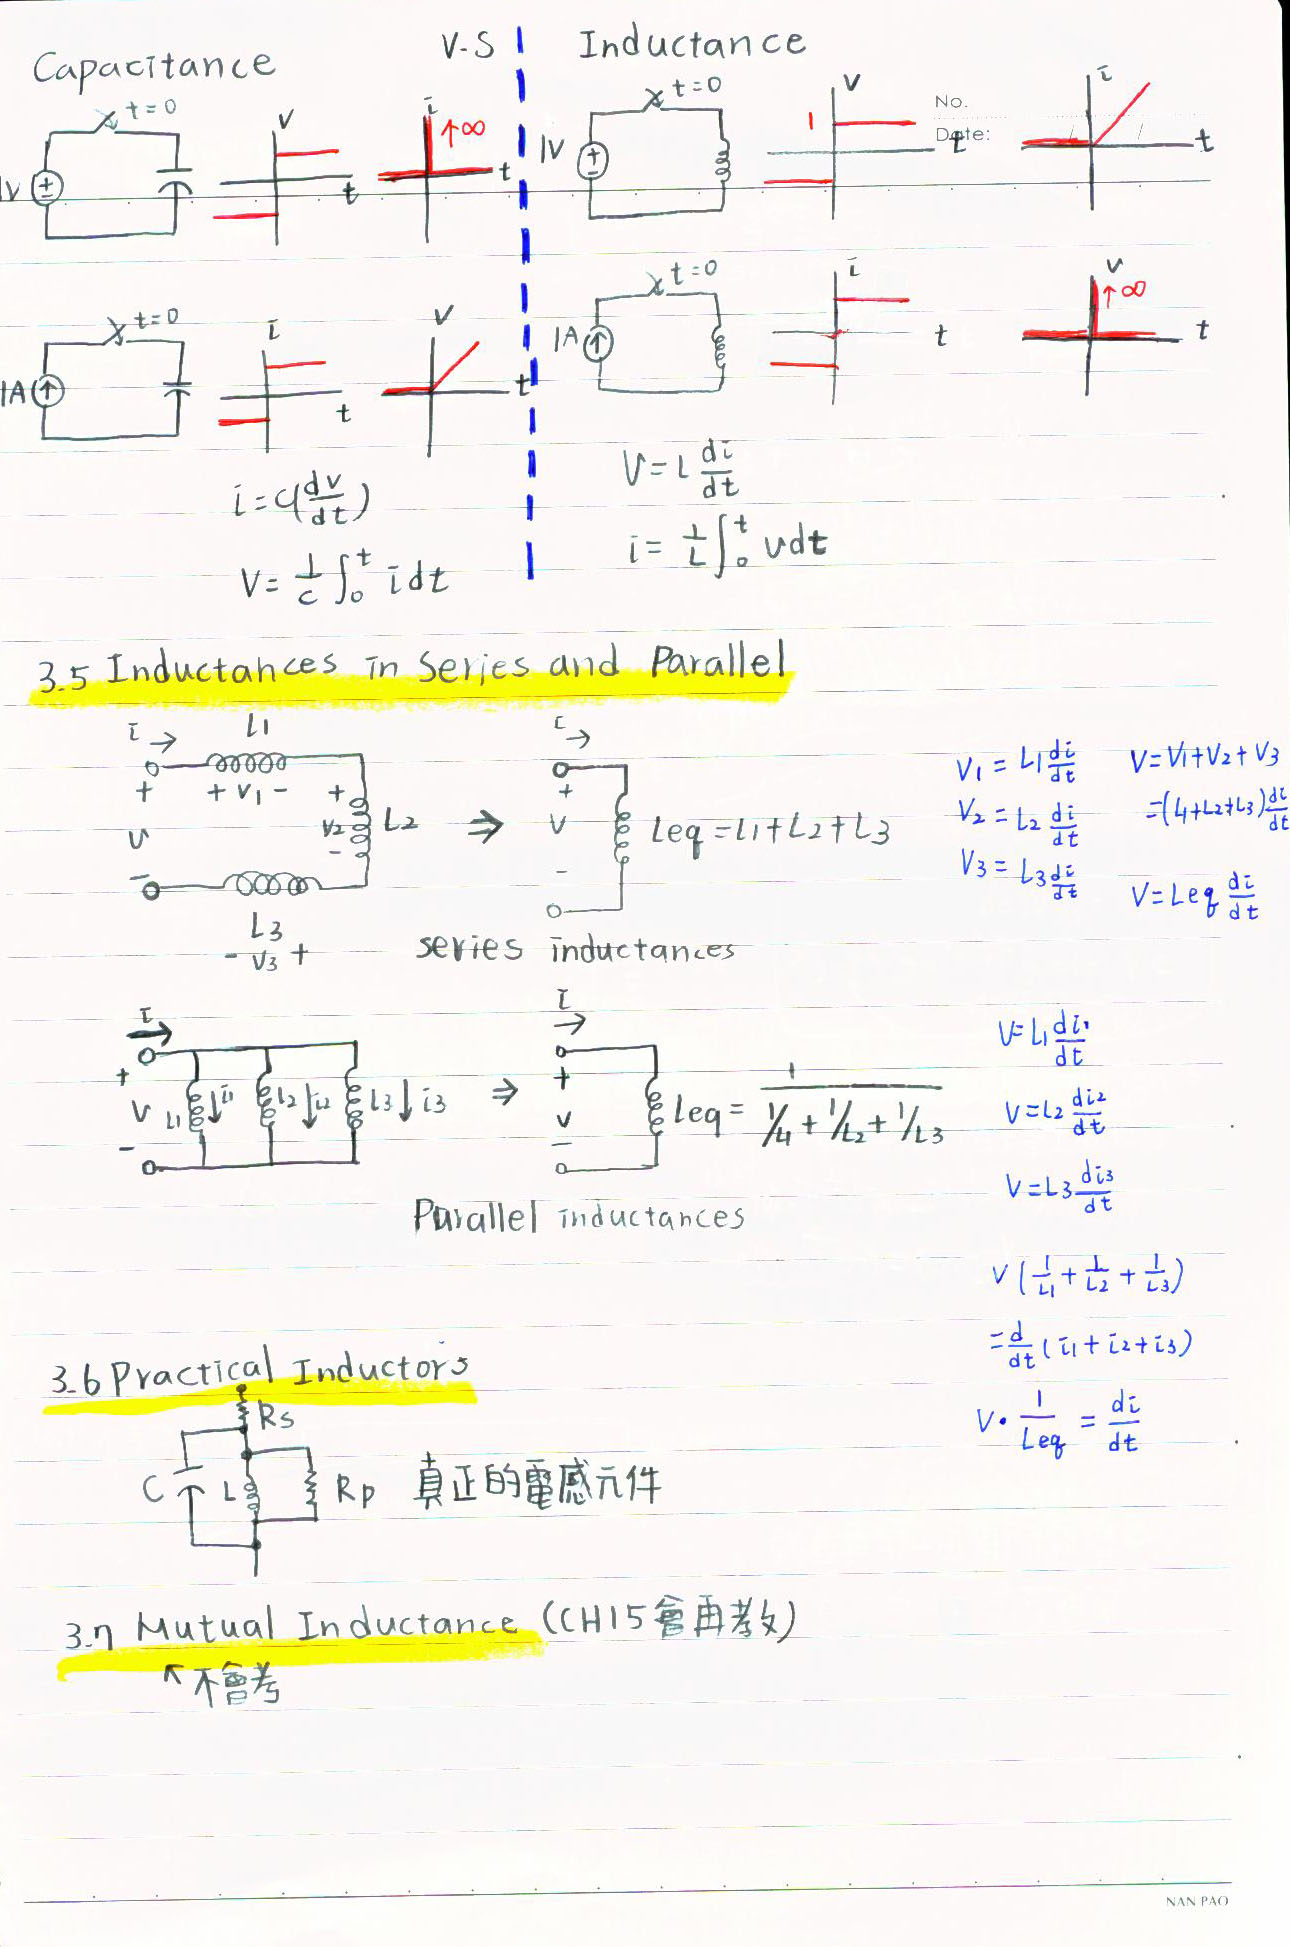 Capacitance V-S Inductance
No.
Date:
t=0 V i ↑∞ t=0 V i
1V t t 1V 1 t t
t=0 i V t=0 i V ↑∞
1A t t 1A t t
i = C(dv/dt)
V = 1/C ∫₀ᵗ i dt
V = L di/dt
i = 1/L ∫₀ᵗ vdt
3.5 Inductances in Series and Parallel
i → L1
+ V1 -
+ V -
+ V2 - L2
L3
- V3 +
⇒
i →
+ V -
Leq = L1+L2+L3
series inductances
V1 = L1 di/dt
V2 = L2 di/dt
V3 = L3 di/dt
V=V1+V2+V3
=(L1+L2+L3) di/dt
V=Leq di/dt
i →
+ V -
L1 ↓i1 L2 ↓i2 L3 ↓ i3 ⇒
i →
+ V -
Leq = 1/(1/L1 + 1/L2 + 1/L3)
Parallel inductances
V=L1 di1/dt
V=L2 di2/dt
V=L3 di3/dt
V (1/L1 + 1/L2 + 1/L3)
= d/dt (i1 + i2 + i3)
V · 1/Leq = di/dt
3.6 Practical Inductors
Rs
C L Rp 真正的電感元件
3.7 Mutual Inductance (CH15會再教)
↖不會考
NAN PAO